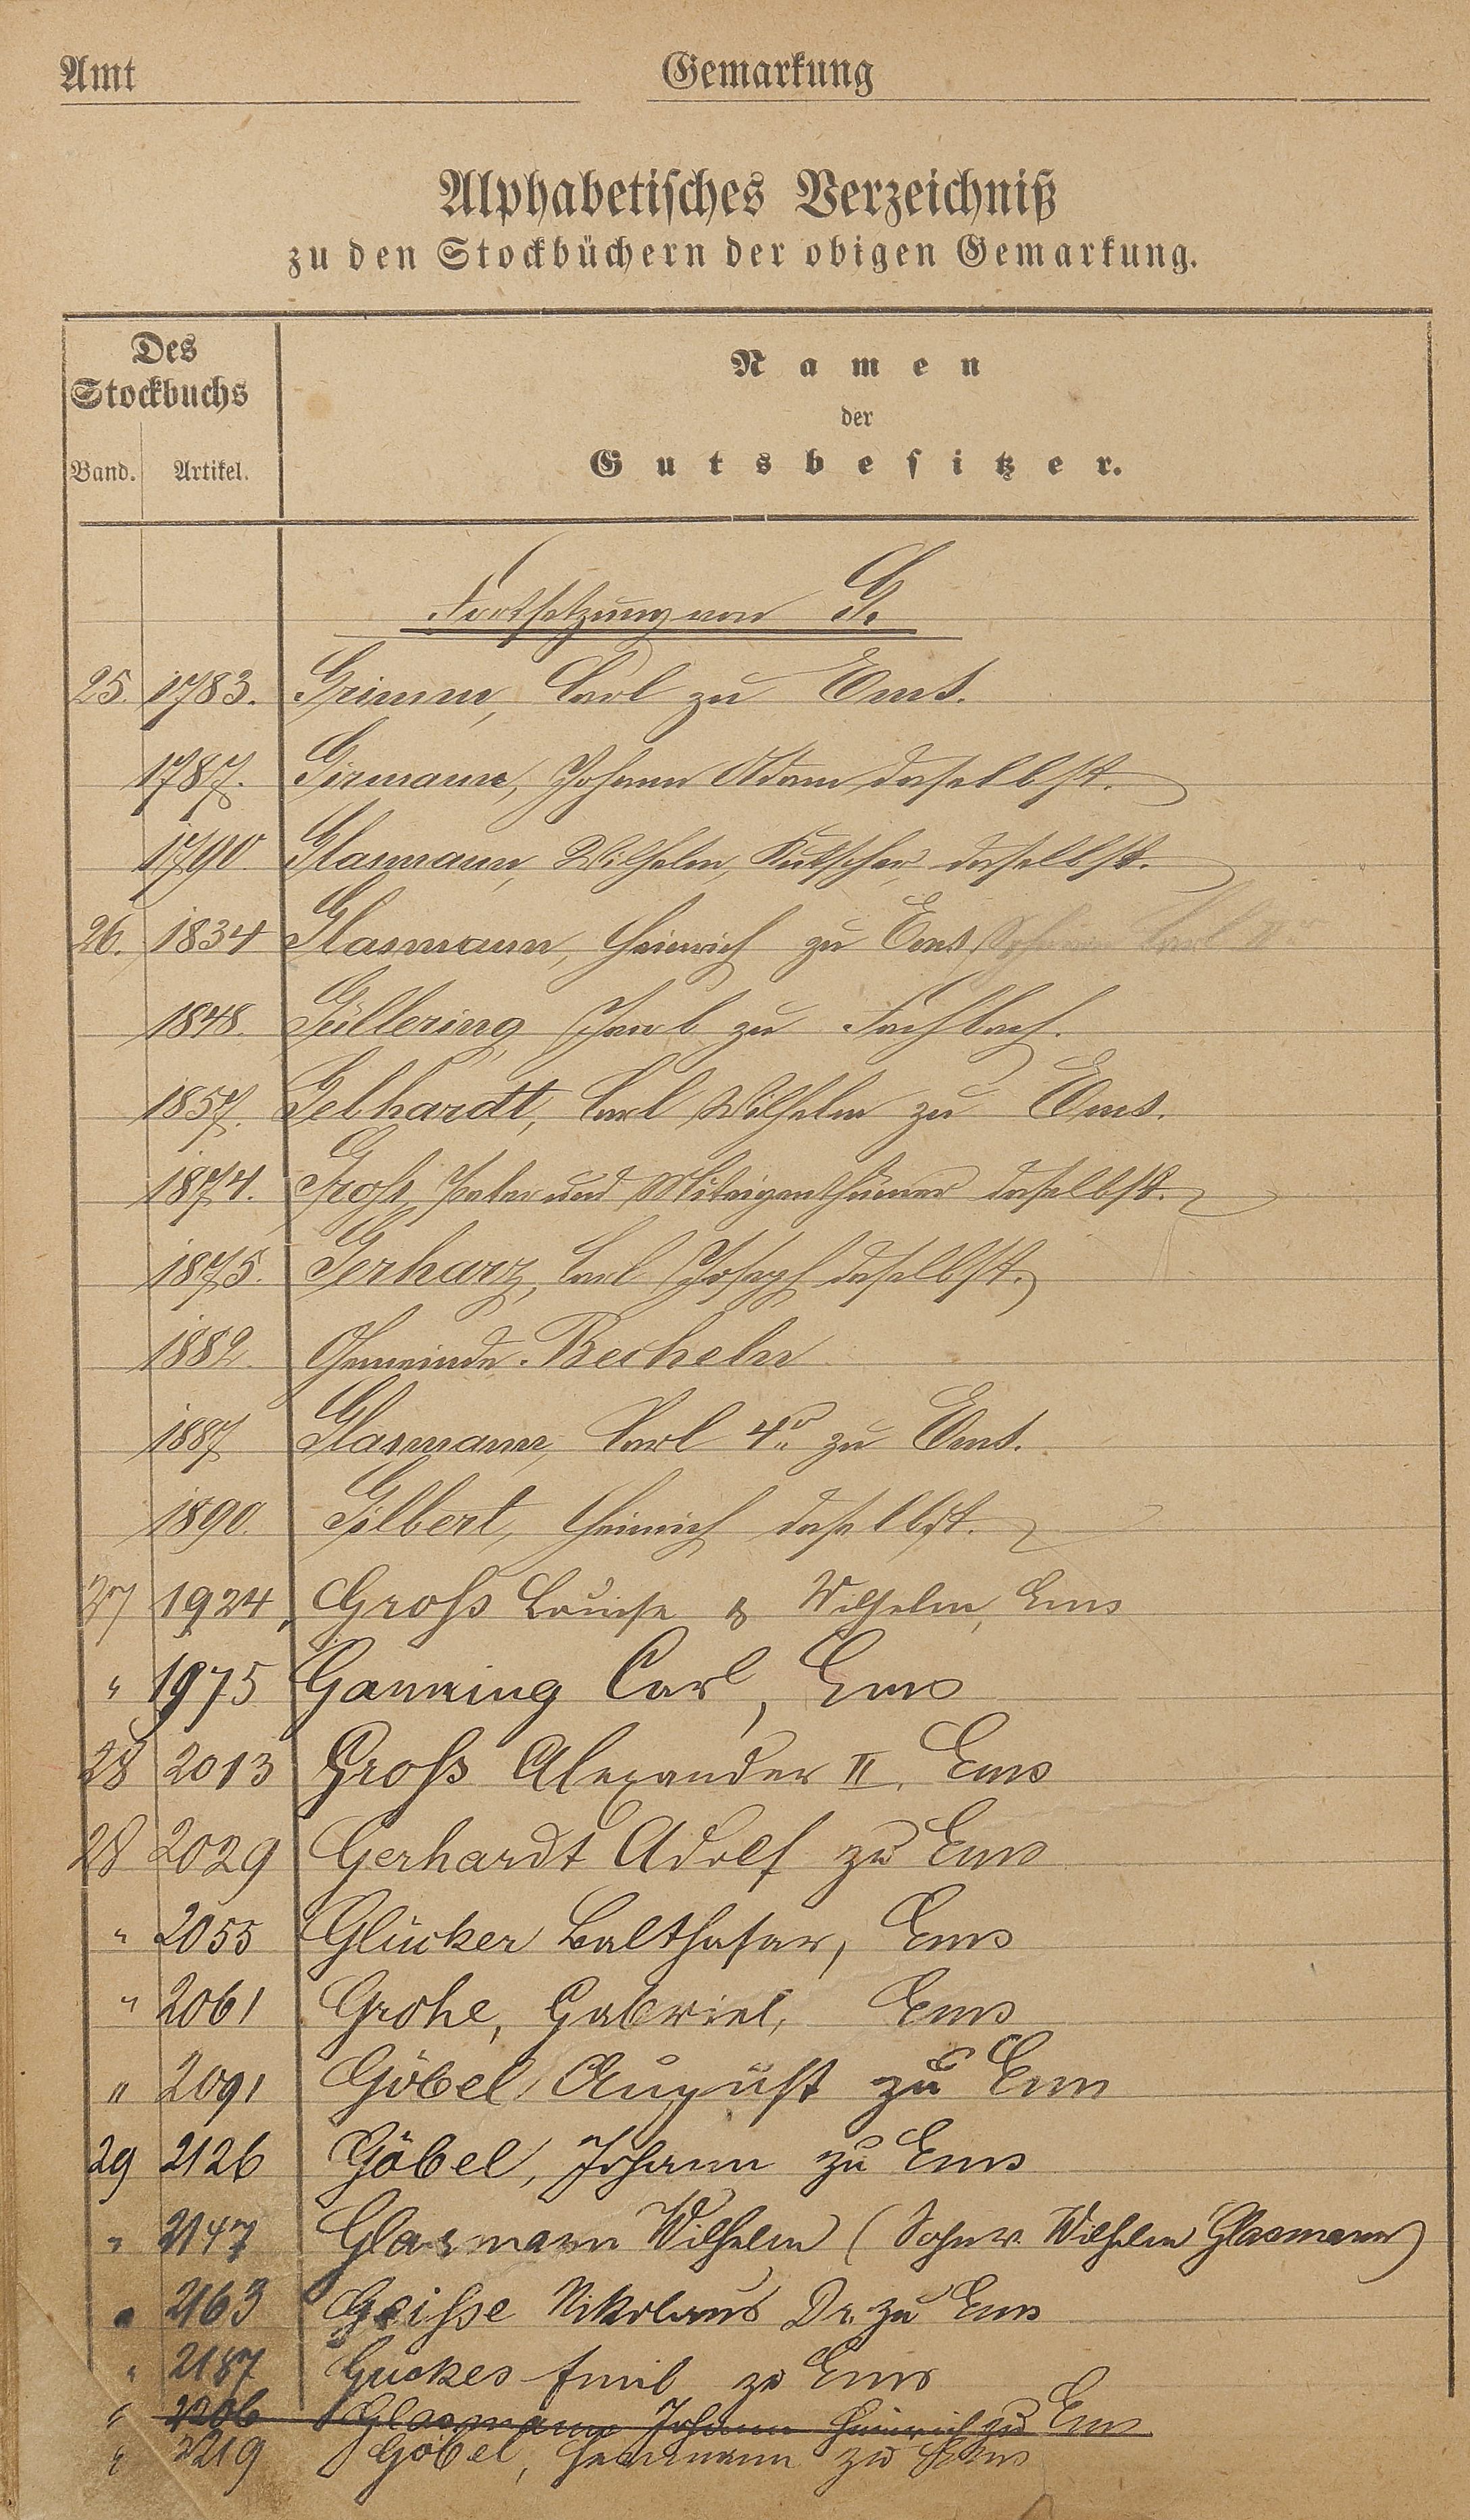 Amt
Gemarkung
Alphabetisches Verzeichniß
zu den Stockbüchern der obigen Gemarkung.
Des
Stockbuchs
Namen
der
Gutsbesitzer.
Band. Artikel.
Fortsetzung von G.
25. 1783. Grimm, Carl zu Ems.
1787. Girmann, Johann Adam daselbst.
1790. Glasmann, Wilhelm, Kutscher daselbst.
26. 1834 Glasmann, Heinrich zu Ems
1848. Güllering Jacob zu Fachbach.
1857. Gelhardt, Carl Wilhelm zu Ems.
1874. Groß, Peter und Miteigenthümer daselbst.
1875. Gerharz, Carl Joseph daselbst.
1882. Gemeinde Becheln
1887 Glasmann, Carl 4r zu Ems.
1890. Gilbert, Heinrich daselbst.
27 1924, Groß Louise & Wilhelm, Ems
" 1975 Ganning Carl, Ems
28 2013 Groß Alexander II. Ems
28 2029 Gerhardt Adolf zu Ems
" 2055 Glücker Balthasar, Ems
" 2061 Grohe, Gabriel, Ems
" 2091 Göbel, August zu Ems
29 2126 Göbel, Johann zu Ems
" 2147 Glasmann Wilhelm (Sohn v. Wilhelm Glasmann)
" 2163 Geiße Nikolaus Dr. zu Ems
" 2187 Guckes Emil zu Ems
" 2206 Glasmann Johann Heinrich zu Ems
" 2219 Göbel, Hermann zu Ems